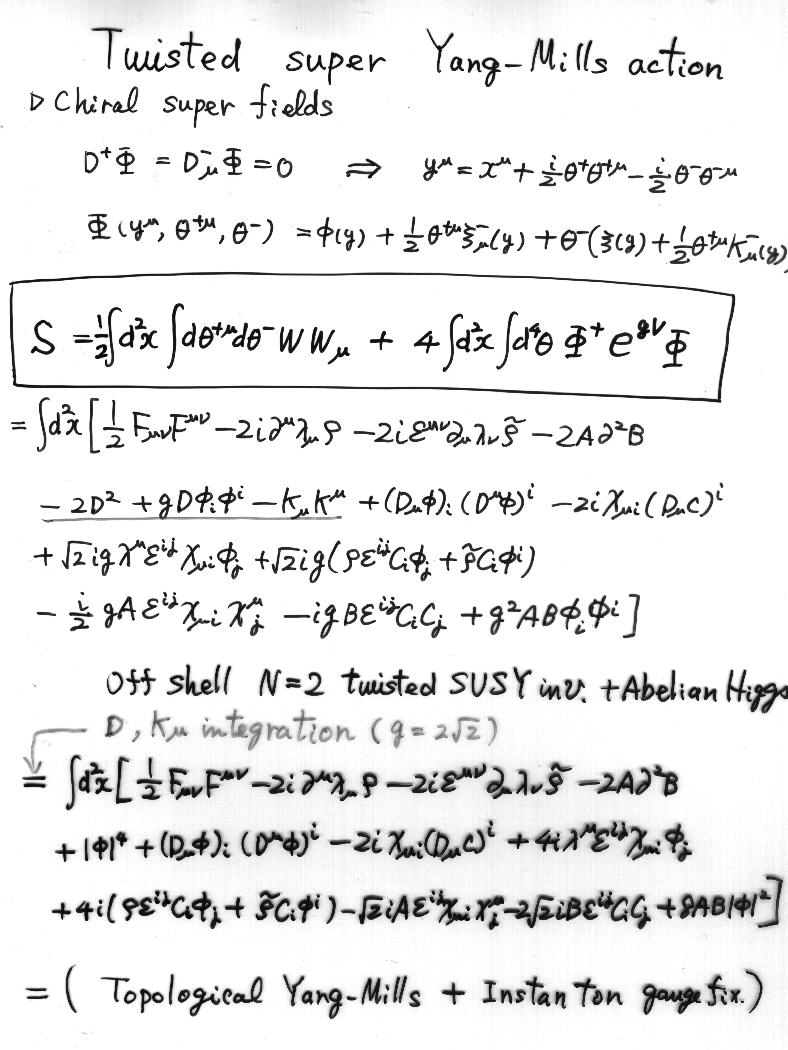 Twisted super Yang-Mills action
▷ Chiral super fields
D⁺Φ = D⁻_μ Φ = 0 ⇒ y^μ = x^μ + i/2 θ⁺θ^{+μ} − i/2 θ⁻θ^{-μ}
Φ(y^μ, θ^{+μ}, θ⁻) = φ(y) + 1/2 θ^{+μ} ξ⁻_μ(y) + θ⁻(ξ(y) + 1/2 θ^{+μ} K⁻_μ(y)
S = 1/2 ∫d²x ∫dθ^{+μ}dθ⁻ W W_μ + 4∫d²x ∫d⁴θ Φ⁺ e^{gV} Φ
= ∫d²x [ 1/2 F_{μν}F^{μν} − 2i∂^μλ_μ ρ − 2iε^{μν}∂_μλ_ν ρ̃ − 2A∂²B
− 2D² + gDφ_iφ^i − K_μK^μ + (D_μφ)_i (D^μφ)^i − 2iχ_{μi}(D_μC)^i
+ √2igλ^με^{ij}χ_{μi}φ_j + √2ig(ρε^{ij}C_iφ_j + ρ̃C_iφ^i)
− i/2 gAε^{ij}χ_{μi}χ^μ_j − igBε^{ij}C_iC_j + g²ABφ_iφ^i ]
Off shell N=2 twisted SUSY inv. + Abelian Higgs
D, K_μ integration (g = 2√2)
= ∫d²x [ 1/2 F_{μν}F^{μν} − 2i∂^μλ_μ ρ − 2iε^{μν}∂_μλ_ν ρ̃ − 2A∂²B
+ |φ|⁴ + (D_μφ)_i (D^μφ)^i − 2iχ_{μi}(D_μC)^i + 4iλ^με^{ij}χ_{μi}φ_j
+ 4i(ρε^{ij}C_iφ_j + ρ̃C_iφ^i) − √2iAε^{ij}χ_{μi}χ^μ_j − 2√2iBε^{ij}C_iC_j + 8AB|φ|² ]
= ( Topological Yang-Mills + Instanton gauge fix. )